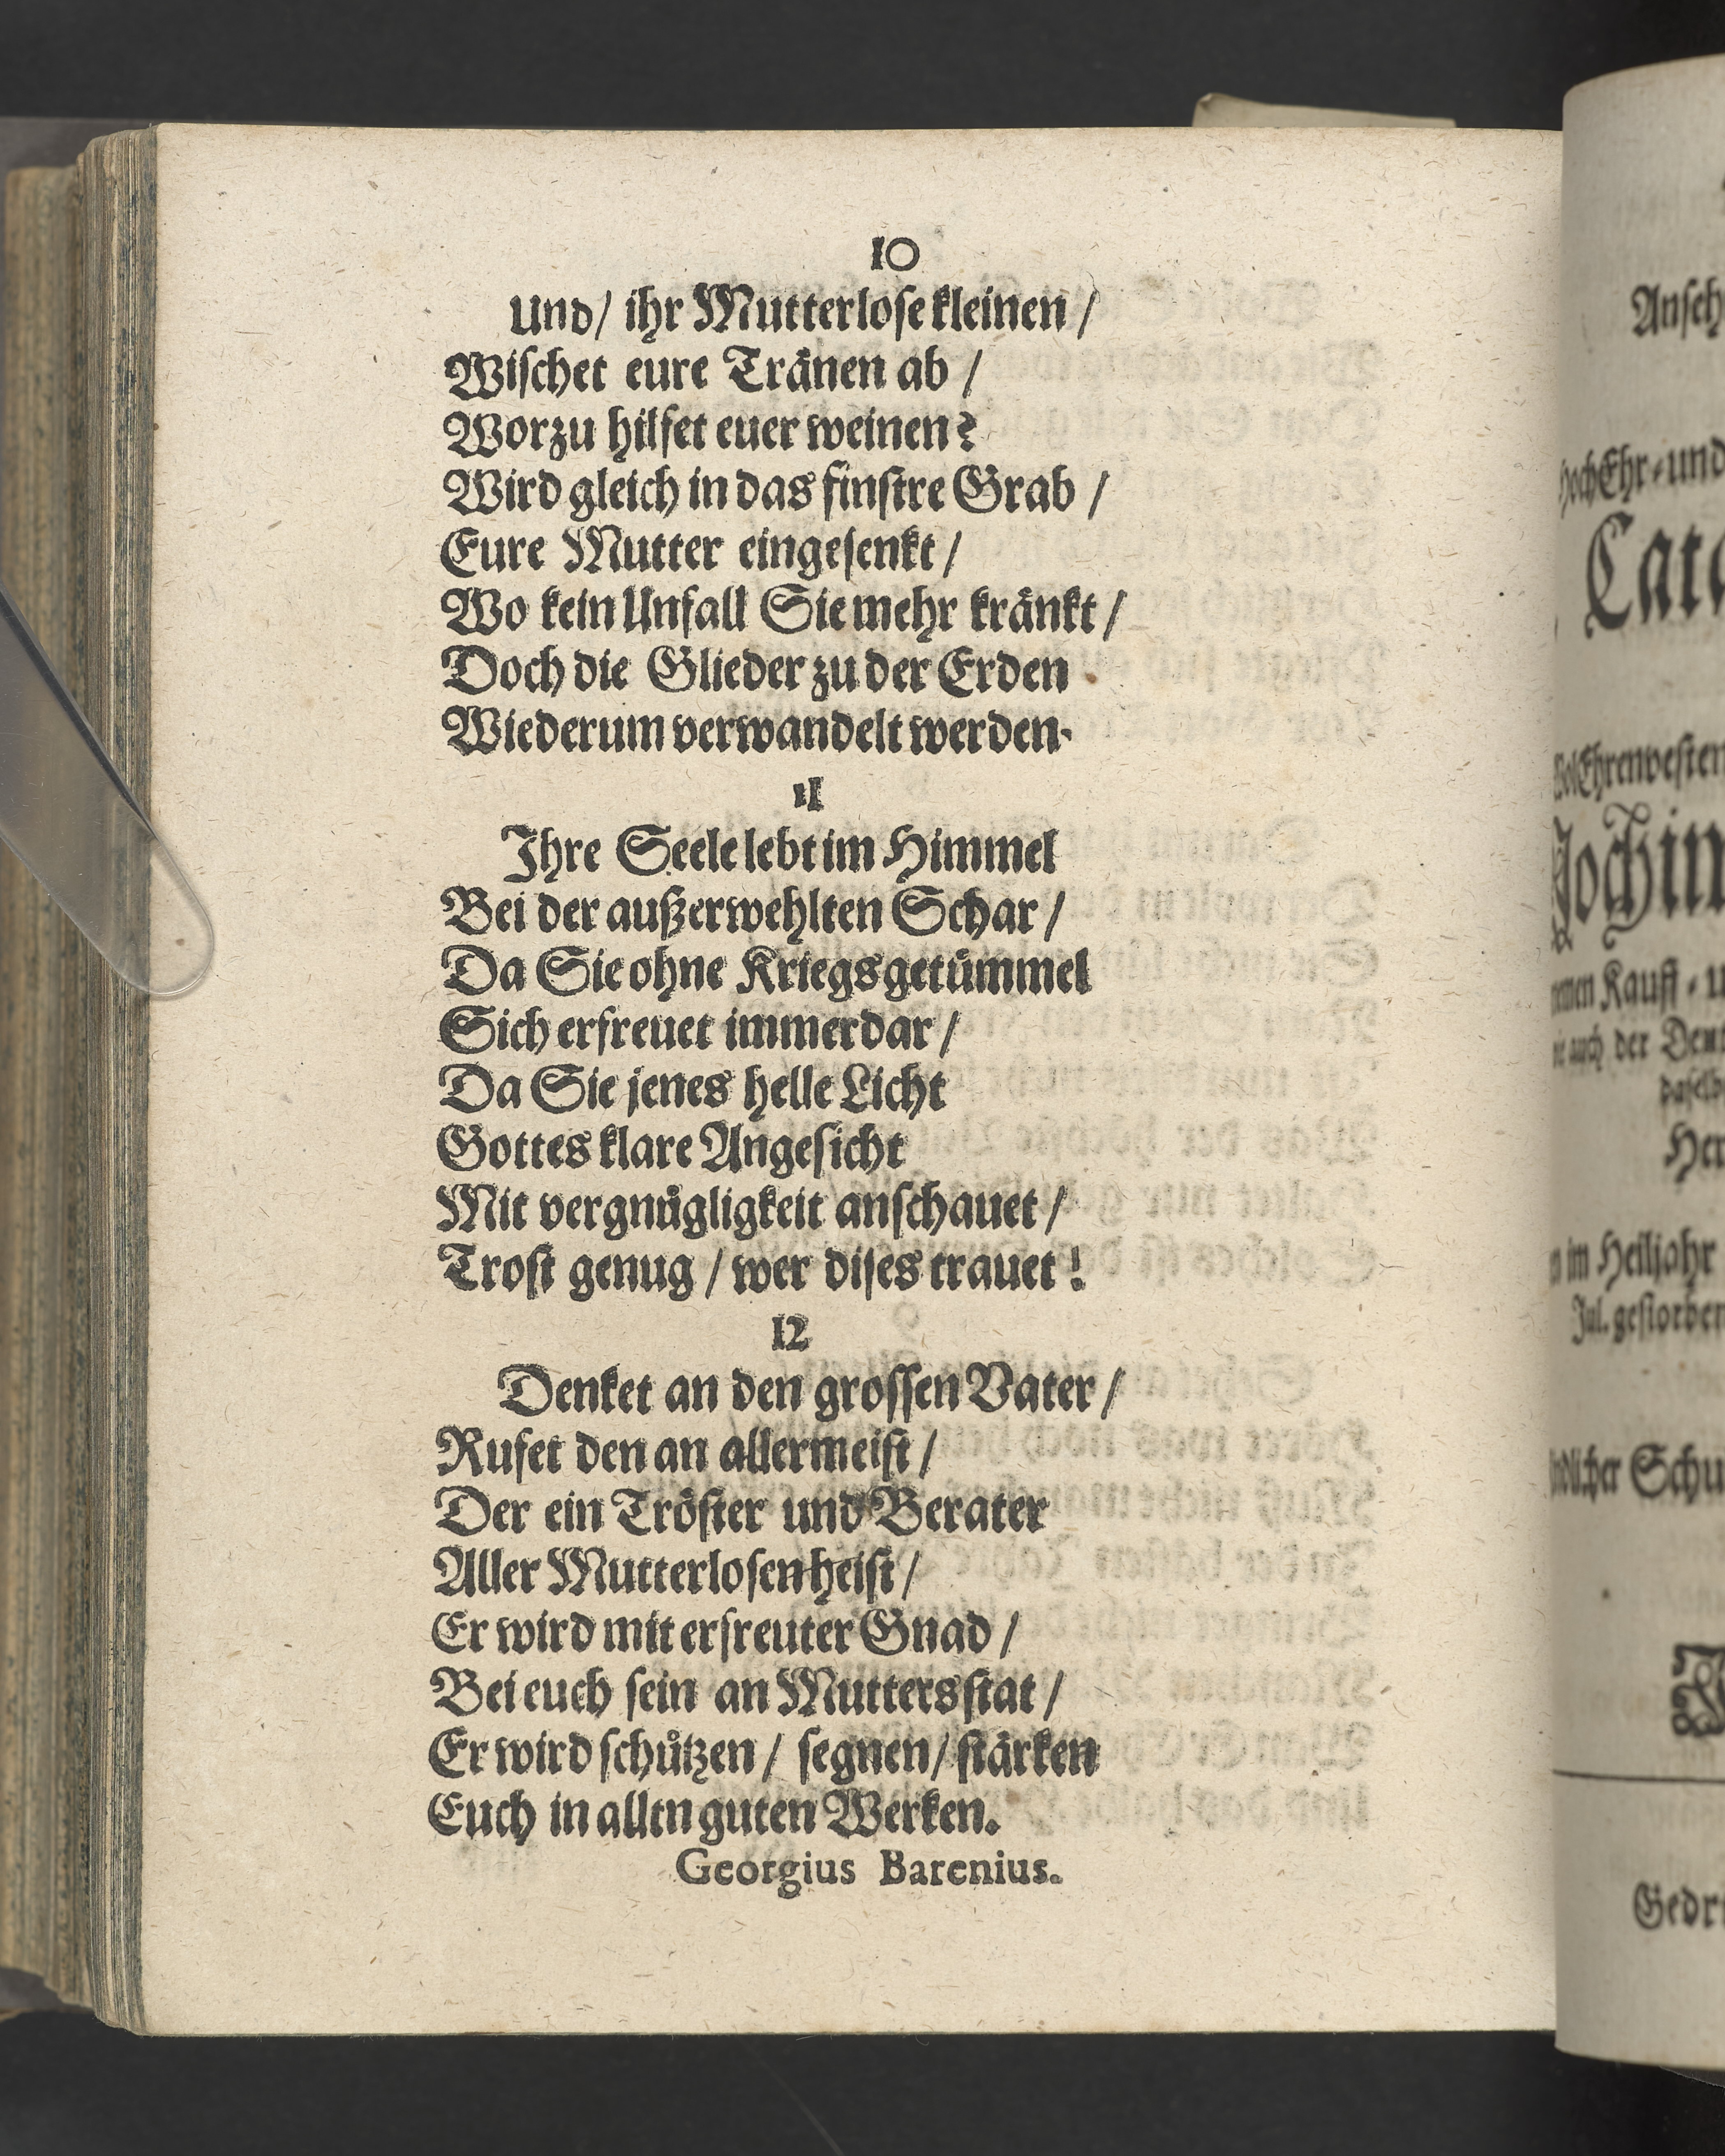 10
und/ ihr Mutterlose kleinen /
Wischet eure Tränen ab /
Worzu hilfet euer weinen?
Wird gleich in das finstre Grab /
Eure Mutter eingesenkt /
Wo kein Unfall Sie mehr kränkt /
Doch die Glieder zu der Erden
Wiederum verwandelt werden.
11
Ihre Seele lebt im Himmel
Bei der außerwehlten Schar /
Da Sie ohne Kriegsgetümmel
Sich erfreuet immerdar /
Da Sie jenes helle Licht
Gottes klare Angesicht
Mit vergnügligkeit anschauet /
Trost genug / wer dises trauet !
12
Denket an den grossen Vater /
Rufet den an allermeist /
Der ein Tröster und Berater
Aller Mutterlosen heist /
Er wird mit erfreuter Gnad /
Bei euch sein an Mutters stat /
Er wird schützen / segnen / stärken
Euch in alltn guten Werken.
Georgius Barenius.
Ansch
HochEhr-und
Cata
Ehrenvesten
Jochim
Kauff-u
auch der Deut
daselb
Her
im Heiljahr
Jul. gestorben
Schu
Gedr